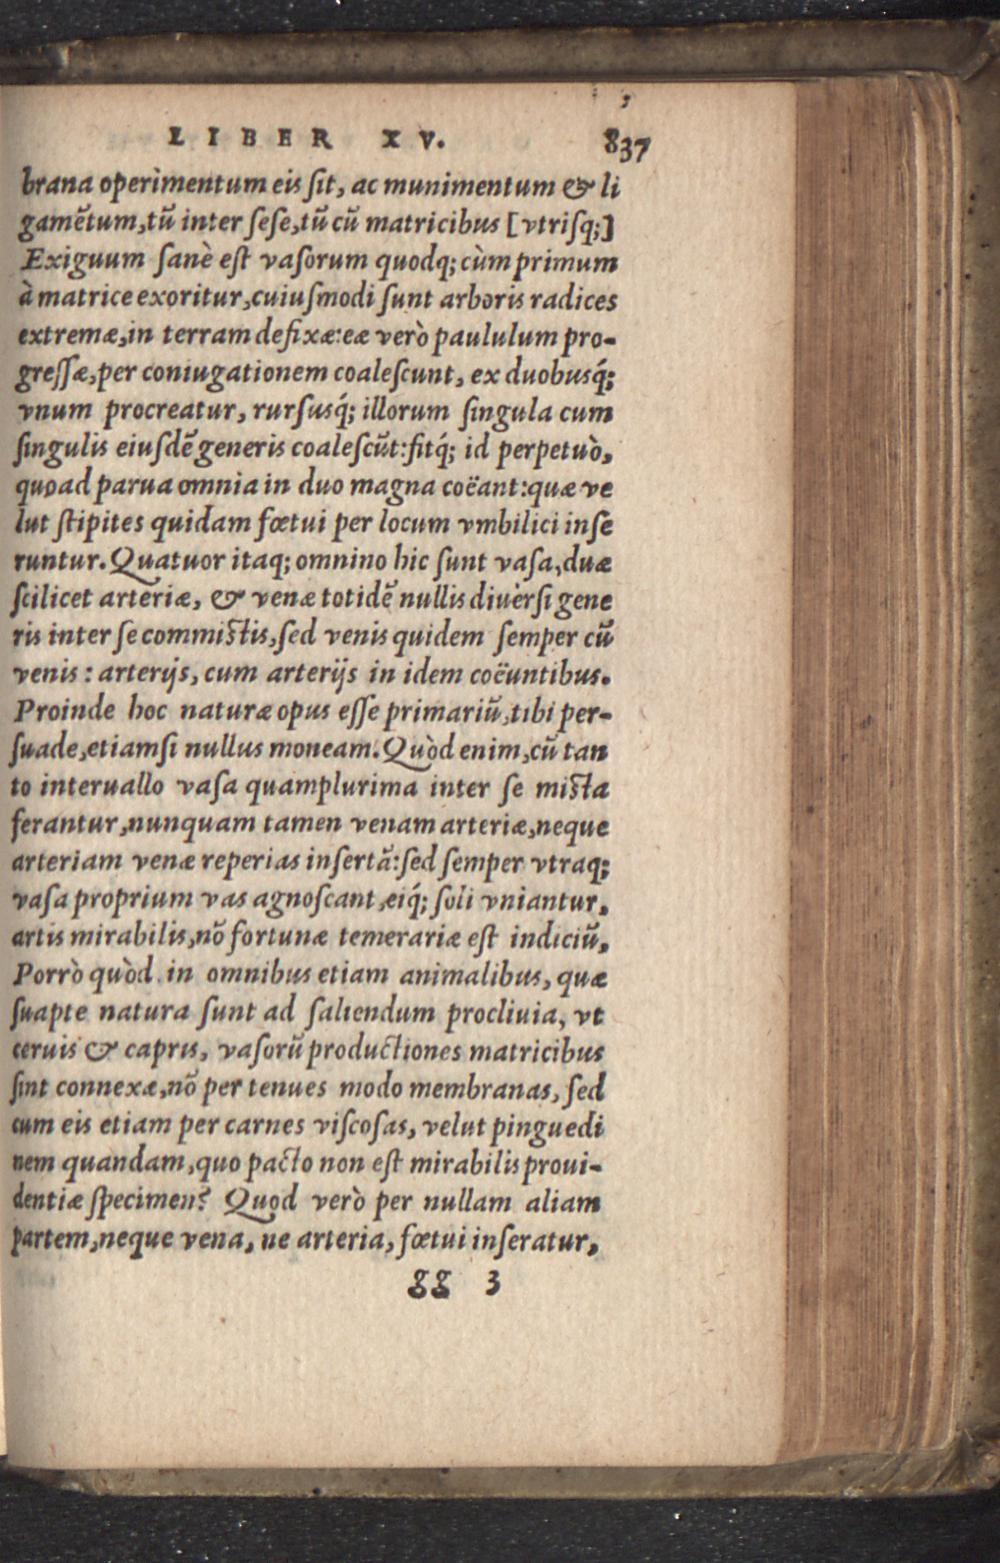 LIBER XV. 837
brana operimentum eis ſit, ac munimentum & li
gamẽtum,tũ inter ſeſe,tũ cũ matricibus [vtriſq;]
Exiguum ſanè eſt vaſorum quodq; cùm primum
à matrice exoritur,cuiuſmodi ſunt arboris radices
extremæ,in terram defixæ:eæ verò paululum pro-
greſſæ,per coniugationem coaleſcunt, ex duobusq́;
vnum procreatur, rurſusq́; illorum ſingula cum
ſingulis eiuſdẽ generis coaleſcũt:fitq́; id perpetuò,
quoad parua omnia in duo magna coëant:quæ ve
lut ſtipites quidam fœtui per locum vmbilici inſe
runtur. Quatuor itaq; omnino hic ſunt vaſa,duæ
ſcilicet arteriæ, & venæ totidẽ nullis diuerſi gene
ris inter ſe commiſtis,ſed venis quidem ſemper cũ
venis: arterijs, cum arterijs in idem coëuntibus.
Proinde hoc naturæ opus eſſe primariũ,tibi per-
ſuade,etiamſi nullus moneam. Quòd enim,cũ tan
to interuallo vaſa quamplurima inter ſe miſta
ferantur,nunquam tamen venam arteriæ,neque
arteriam venæ reperias inſertã:ſed ſemper vtraq;
vaſa proprium vas agnoſcant,eiq́; ſoli vniantur,
artis mirabilis,nõ fortunæ temerariæ eſt indiciũ,
Porrò quòd in omnibus etiam animalibus, quæ
ſuapte natura ſunt ad ſaliendum procliuia, vt
ceruis & capris, vaſorũ productiones matricibus
ſint connexæ,nõ per tenues modo membranas, ſed
cum eis etiam per carnes viſcoſas, velut pinguedi
nem quandam,quo pacto non eſt mirabilis proui-
dentiæ ſpecimen? Quod verò per nullam aliam
partem,neque vena, ne arteria, fœtui inſeratur,
gg 3